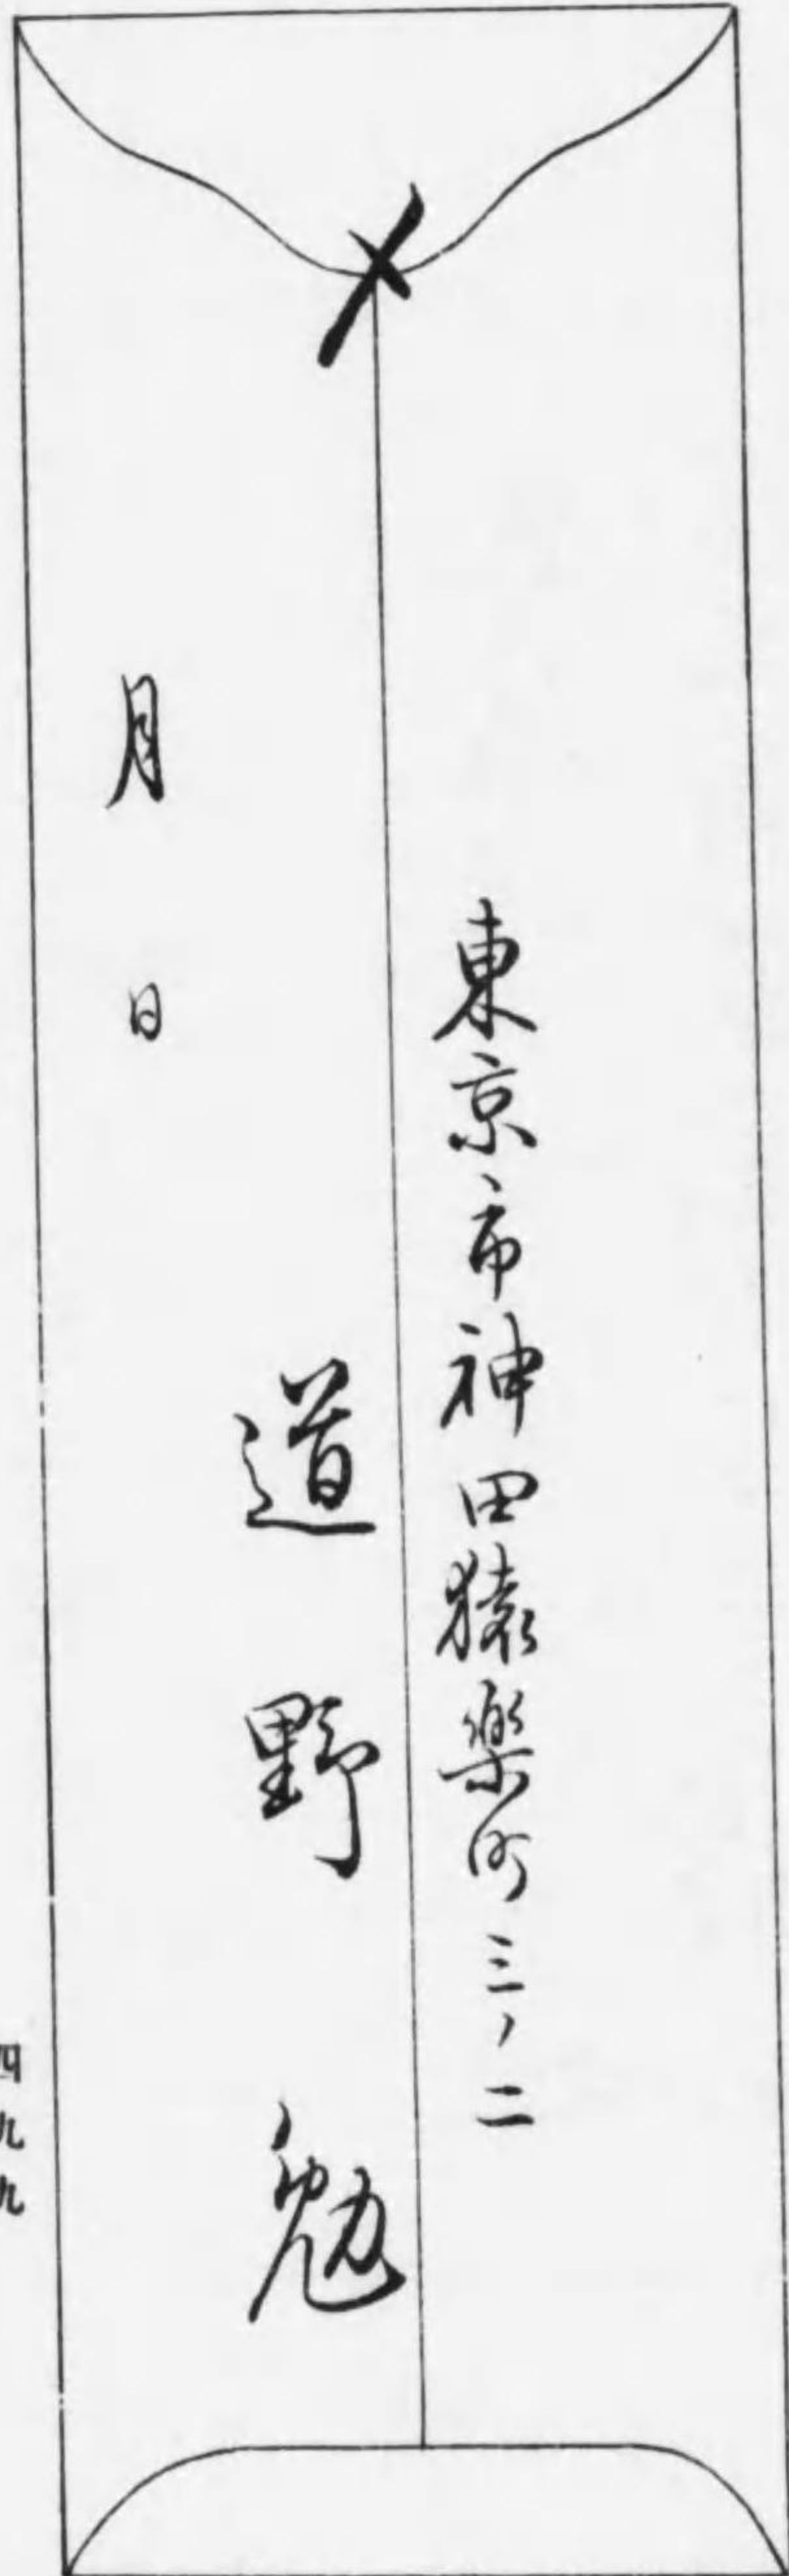 〆
東京市神田猿楽町三ノ二
道野勉
月日
四九九